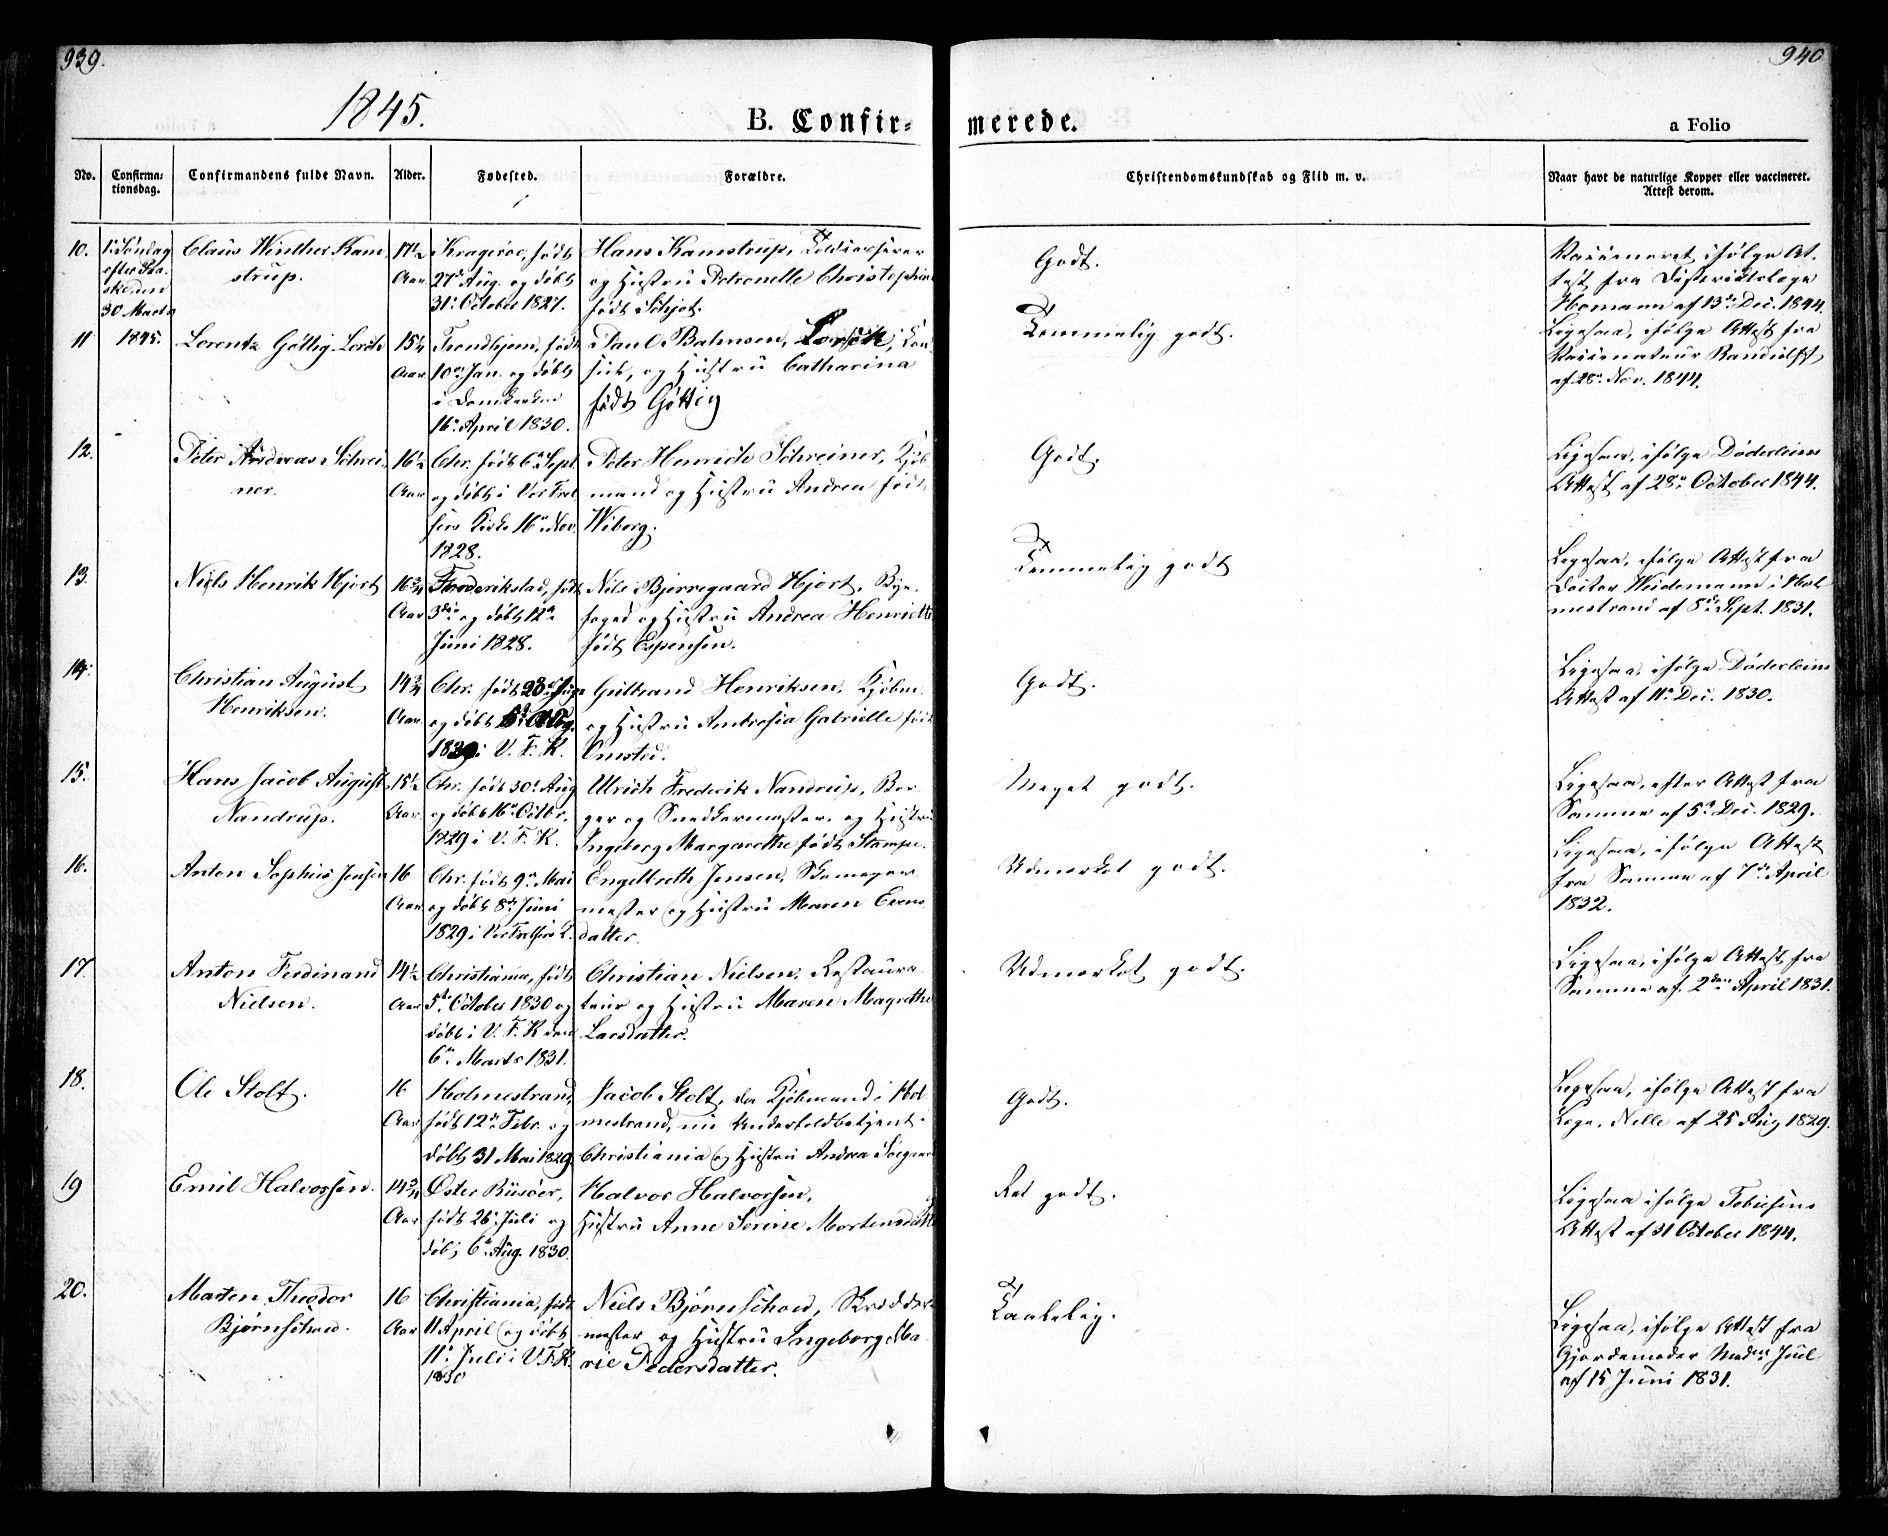 939.
940
1845.
B. Confir-
merede.
a Folio
No.
Confirma-
tionsdag.
Confirmandens fulde Navn.
Alder.
Fødested.
Forældre.
Christendomskundskab og Flid m. v.
Naar havt de naturlige Kopper eller vaccineret.
Attest derom.
10.
1ste Søndag
efter Paa-
ske den
30 Marts
1845.
Claus Winther Kam
strup.
17½
Aar
Kragerøe, født
27de Aug. og døbt
31. October 1827.
Hans Kamstrup, Toldkasserer
og Hustru Petronelle Christophine
født Schjøt.
Godt.
Vaccineret ifølge At-
test fra Districtslæge
Homann af 13de Dec. 1844.
11
Lorentz Gøttig Lorck
15¼
Aar
Trondhjem, født
10de Jan. og døbt
i Domkirken
16de April 1830.
Paul Bahnsen Lorck, Con-
sul, og Hustru Catharina
født Gøttig
Temmelig godt.
Ligesaa, ifølge Attest fra
Vaccinateur Randulff
af 28de Nov. 1844.
12.
Peter Andreas Schrei
ner.
16½
Aar
Chr. født 6te Sept.
og døbt i Vor Frel
sers Kirke 16de Nov.
1828.
Peter Henrich Schreiner, Kjøb
mand og Hustru Andrea født
Wiborg.
Godt.
Ligesaa, ifølge Døderleins
Attest af 28de October 1844.
13.
Niels Henrik Hjort
16¾
Aar
Frederikstad, født
3die og døbt 12te
Juni 1828.
Nels Bjerregaard Hjort, Bye-
foged og Hustru Andrea Henriette
født Espensen.
Temmelig godt
Ligesaa, ifølge Attest fra
Doctor Weidemann i Hol
mestrand af 5te Sept. 1831.
14.
Christian August
Henriksen.
14¾
Aar.
Chr. født 23de
og døbt
1830 i V. F. K.
Gulbrand Henriksen, Kjøbm.
og Hustru Androsia Gabrielle født
Omsted.
Godt.
Ligesaa, ifølge Døderleins
Attest af 11te Dec. 1830.
15.
Hans Jacob August
Nandrup.
15½
Aar.
Chr. født 30te Aug
og døbt 16de Octbr.
1829 i V. F. K.
Ulrich Frederik Nandrup, Bor-
ger og Snedkermester, og Hustru
Ingeborg Margarethe født Stampe.
Meget godt.
Ligesaa, efter Attest fra
Samme af 5te Dec. 1829.
16.
Anton Sophus Jensen
16
Aar
Chr. født 9de Mai
og døbt 8de Juni
1829 i Vor Frelsers K.
Engelbreth Jensen, Skomager
mester og Hustru Maren Evens
datter.
Udmærket godt.
Ligesaa, ifølge Attest
fra Samme af 7de April
1832.
17.
Anton Ferdinand
Nielsen.
14½
Aar
Christiania, født
5te October 1830 og
døbt i V. F. K den
6te Marts 1831.
Christian Nielsen, Restaura-
teur og Hustru Maren Magrethe
Larsdatter.
Udmærket godt.
Ligesaa, ifølge Attest fra
Samme af 2den April 1831.
18.
Ole Stolt.
16
Aar
Holmestrand,
født 12te Febr. og
døbt 31 Mai 1829
Jacob Stolt, da Kjøbmand i Hol
mestrand, nu Undertoldbetjent i
Christiania og Hustru Andrea
Godt.
Ligesaa, ifølge Attest fra
Læge Nelle af 25 Aug 1829.
19
Emil Halvorsen.
14¾
Aar
Øster Riisøer,
født 26de Juli og
døbt 6te Aug. 1830.
Halvor Halvorsen,
Hustru Anne Serine Mortensdatter
Ret godt.
Ligesaa ifølge Tobiesens
Attest af 31 October 1844.
20.
Morten Theodor
Bjørnschou.
16
Aar
Christiania, født
11 April og døbt
11te Juli i V F. K.
1830
Niels Bjørnschou, Skrædder-
mester og Hustru Ingeborg Ma-
rie Pedersdatter.
Taalelig.
Ligesaa, ifølge Attest fra
Gjordemoder Madme Juel
af 15 Juni 1831.